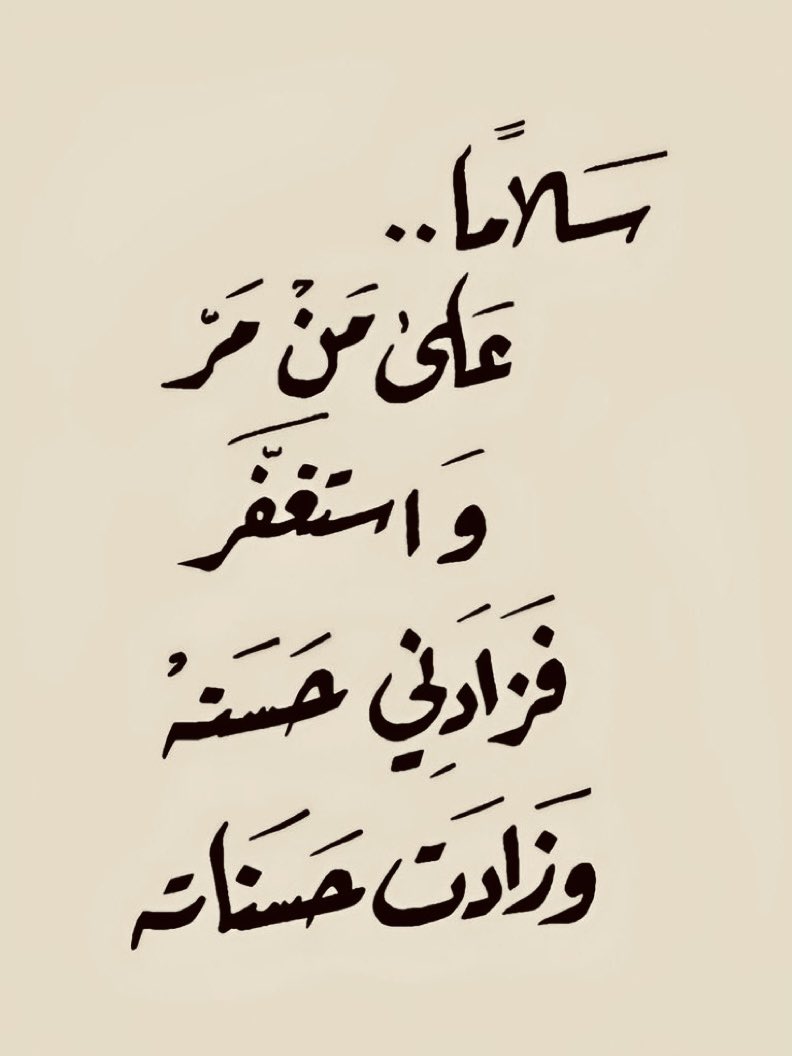 سَلاماً..
عَلىٰ مَنْ مَرّ
وَ استغفّرَ
فَزَادَنِي حَسَنهْ
وزَادَت حَسَنَاته